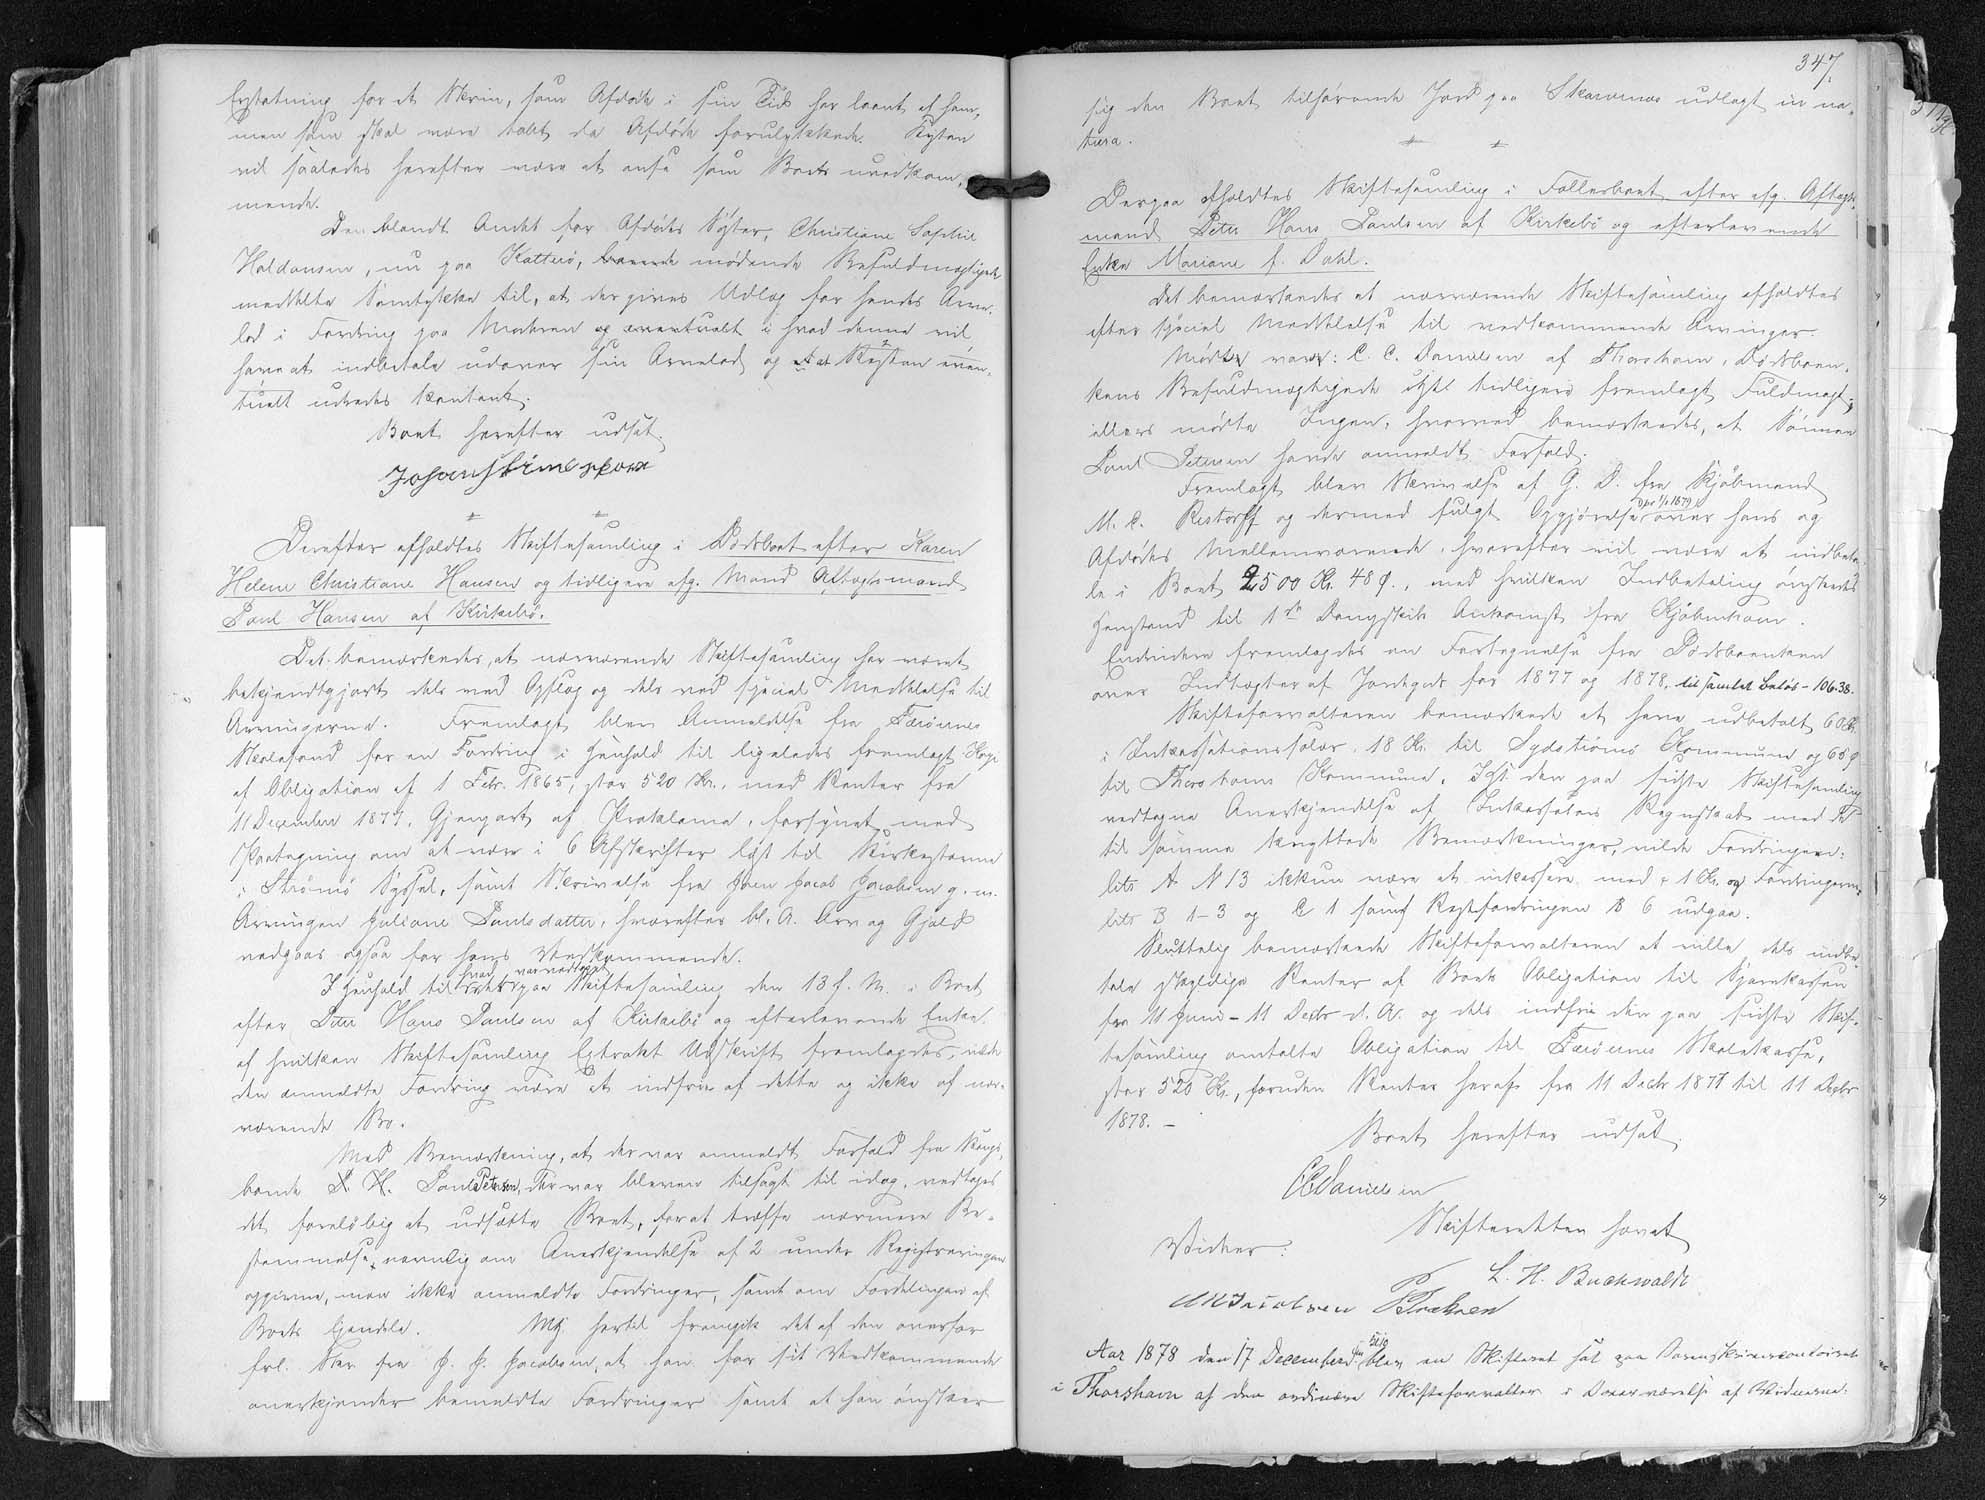 Erstatning for et Skrin, som Afdøde i sin Tid har laant af ham,
men som skal være tabt da Afdøde forulykkede. Resten
vil saaledes herefter være at anse som Boets uvedkom-
mende.
Den blandt Andet for Afdødes Søster, Christiane Sophie
Haldansen, nu paa Kalsø, mødende Befuldmægtigede
meddelte Samtykke til, at der gives Udlæg for hendes Arve-
lod i Fordring paa Moderen og eventuelt i hvad denne vil
have at indbetale udover sin Arvelod og at Resten even-
tuelt udredes kontant.
Boet herefter udsat.
Derefter afholdtes Skiftesamling i Dødsboet efter Karen
Helene Christiane Hansen og tidligere afg. Mand Aftægtsmand
Poul Hansen af Kirkebø.
Det bemærkedes, at nærværende Skiftesamling har været
bekjendtgjort dels ved Opslag og dels ved special Meddelelse til
Arvingerne. Fremlagt blev Anmeldelse fra Færøernes
Skolefond for en Fordring i Henhold til ligeledes fremlagt Kopi
af Obligation af 1 Febr. 1865, stor 520 Kr., med Renter fra
11 December 1877, Gjenpart af Proklama, forsynet med
Paategning om at være i 6 Afskrifter læst til Kirkestævne
i Strømø Syssel, samt Skrivelse fra Joen Jacob Jacobsen g. m.
Arvingen Juliane Poulsdatter, hvorefter bl. A. Arv og Gjæld
vedgaas ogsaa for hans Vedkommende.
I Henhold til hvad var vedtaget paa Skiftesamling den 13 f. M. i Boet
efter Peter Hans Poulsen af Kirkebø og efterlevende Enke,
af hvilken Skiftesamling Extrakt Udskrift fremlagdes, vilde
den anmeldte Fordring være at indfri af dette og ikke af nær-
værende Bo.
Med Bemærkning, at der var anmeldt Forfald fra Kongs-
bonde Poul Petersen, der var bleven tilsagt til idag, vedtoges
det foreløbig at udsætte Boet, for at træffe nærmere Be-
stemmelse, navnlig om Anerkjendelse af 2 under Registreringen
opgivne, men ikke anmeldte Fordringer, samt om Fordelingen af
Boets Ejendele. Mht. hertil fremgik det af den ovenfor
frl. Skr. fra J. J. Jacobsen, at han for sit Vedkommende
anerkjender bemeldte Fordringer samt at han ønsker
347.
sig den Boet tilhørende Jord paa Skarvenes udlagt in na-
tura.
Derpaa afholdtes Skiftesamling i Fællesboet efter afg. Aftægts-
mand Peter Hans Poulsen af Kirkebø og efterlevende
Enke Mariane f. Dahl.
Det bemærkedes at nærværende Skiftesamling afholdtes
efter special Meddelelse til vedkommende Arvinger.
Mødt var: C. C. Danielsen af Thorshavn, Dødsboen-
kens Befuldmægtigede ifølge tidligere fremlagt Fuldmagt;
ellers mødte Ingen, hvorved bemærkedes, at Sønnen
Poul Petersen havde anmeldt Forfald.
Fremlagt blev Skrivelse af G. D. fra Kjøbmand
M. C. Restorff og dermed fulgt Opgjørelse over hans og
Afdødes Mellemværende, hvorefter vil være at indbeta-
le i Boet 2500 Kr. 48 Ø., med hvilken Indbetaling ønskedes
Henstand til 1ste Dampskibs Ankomst fra Kjøbenhavn.
Endvidere fremlagdes en Fortegnelse fra Dødsboenken
over Indtægter af Jordgods for 1877 og 1878, til samlet Beløb - 106.38.
Skifteforvalteren bemærkede at have udbetalt 60 Kr.
i Inkassationssalær, 18 Kr. til Sydstrømø Kommune og 68 Ø
til Thorshavns Kommune. Ifl. den paa sidste Skiftesamling
vedtagne Anerkjendelse af Inkassators Regnskab med de
til samme knyttede Bemærkninger, vilde Fordringen:
litr A N 13 ikkun være at inkassere med 1 Kr. og Fordringerne
litr B 1-3 og C 1 samt Restfordringen B 6 udgaa.
Sluttelig bemærkede Skifteforvalteren at ville dels indbe-
tale skyldige Renter af Boets Obligation til Sparekassen
fra 11 Juni - 11 Decbr d. A. og dels indfri den paa sidste Skif-
tesamling omtalte Obligation til Færøernes Skolekasse,
stor 520 Kr., foruden Renter heraf fra 11 Decbr 1877 til 11 Decbr
1878. -
Boet herefter udsat.
CCDanielsen
Skifteretten hævet
L. H. Buchwaldt
Vidner:
Aar 1878 den 17 December blev en Skifteret sat paa Sorenskriverkontoiret
i Thorshavn af den ordinære Skifteforvalter i Overværelse af Vidnerne: